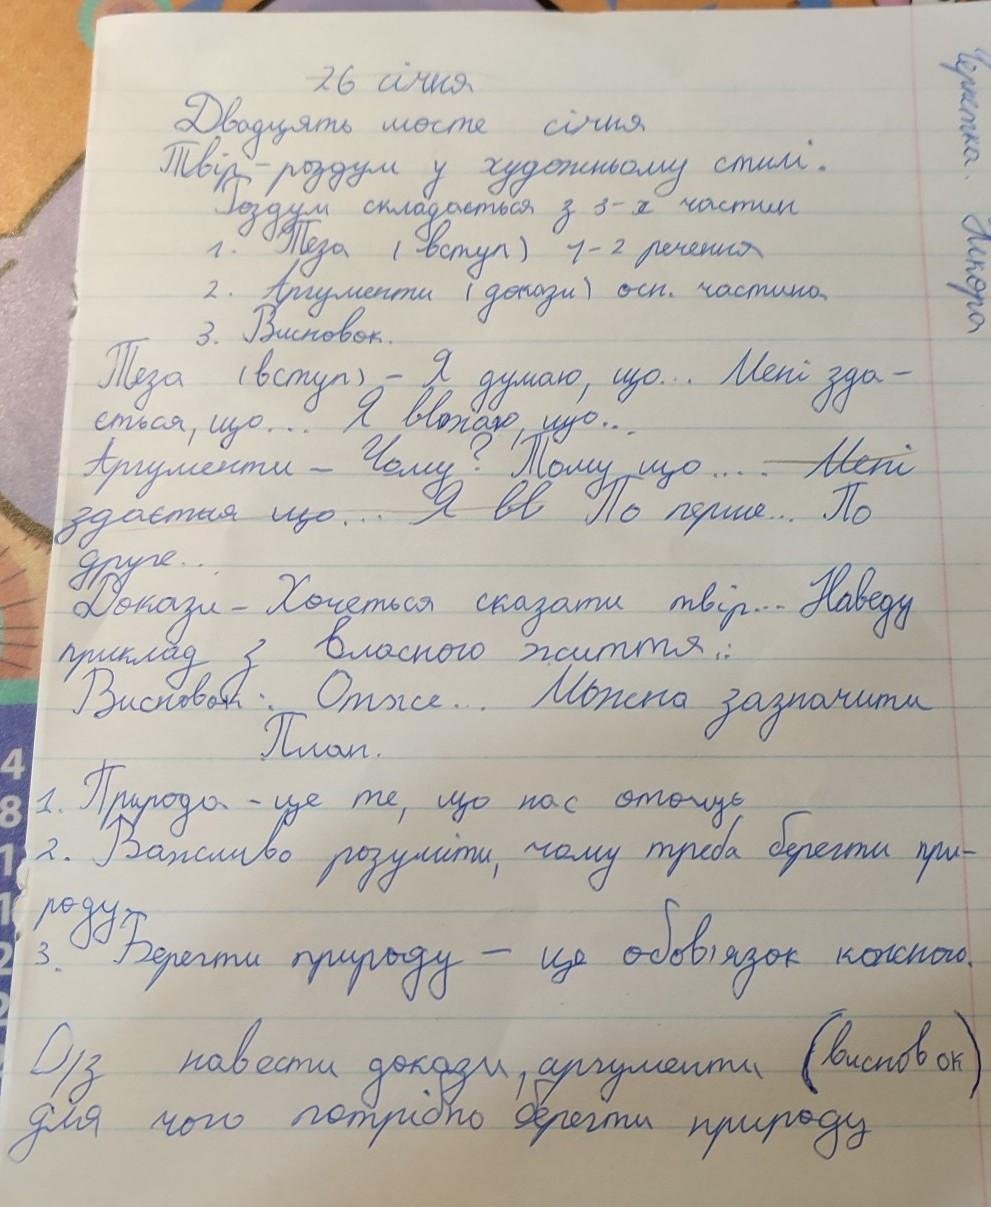 26 січня
Двадцять шосте січня
Твір-роздум у художньому стилі.
Роздум складається з 3-х частин
1. Теза (вступ) 1-2 речення
2. Аргументи (докази) осн. частина
3. Висновок.
Теза (вступ) - Я думаю, що... Мені зда-
ється, що... Я вважаю, що...
Аргументи - Чому? Тому що.... Мені
здається що... Я вв По перше... По
друге...
Докази - Хочеться сказати твір... Наведу
приклад з власного життя...
Висновок. Отже... Можна зазначити
План.
1. Природа - це те, що нас оточує
2. Важливо розуміти, чому треба берегти при-
роду.
3. Берегти природу - це обов'язок кожного.
D/з навести докази, аргументи (висновок)
для чого потрібно берегти природу
Чернетка. Іскора